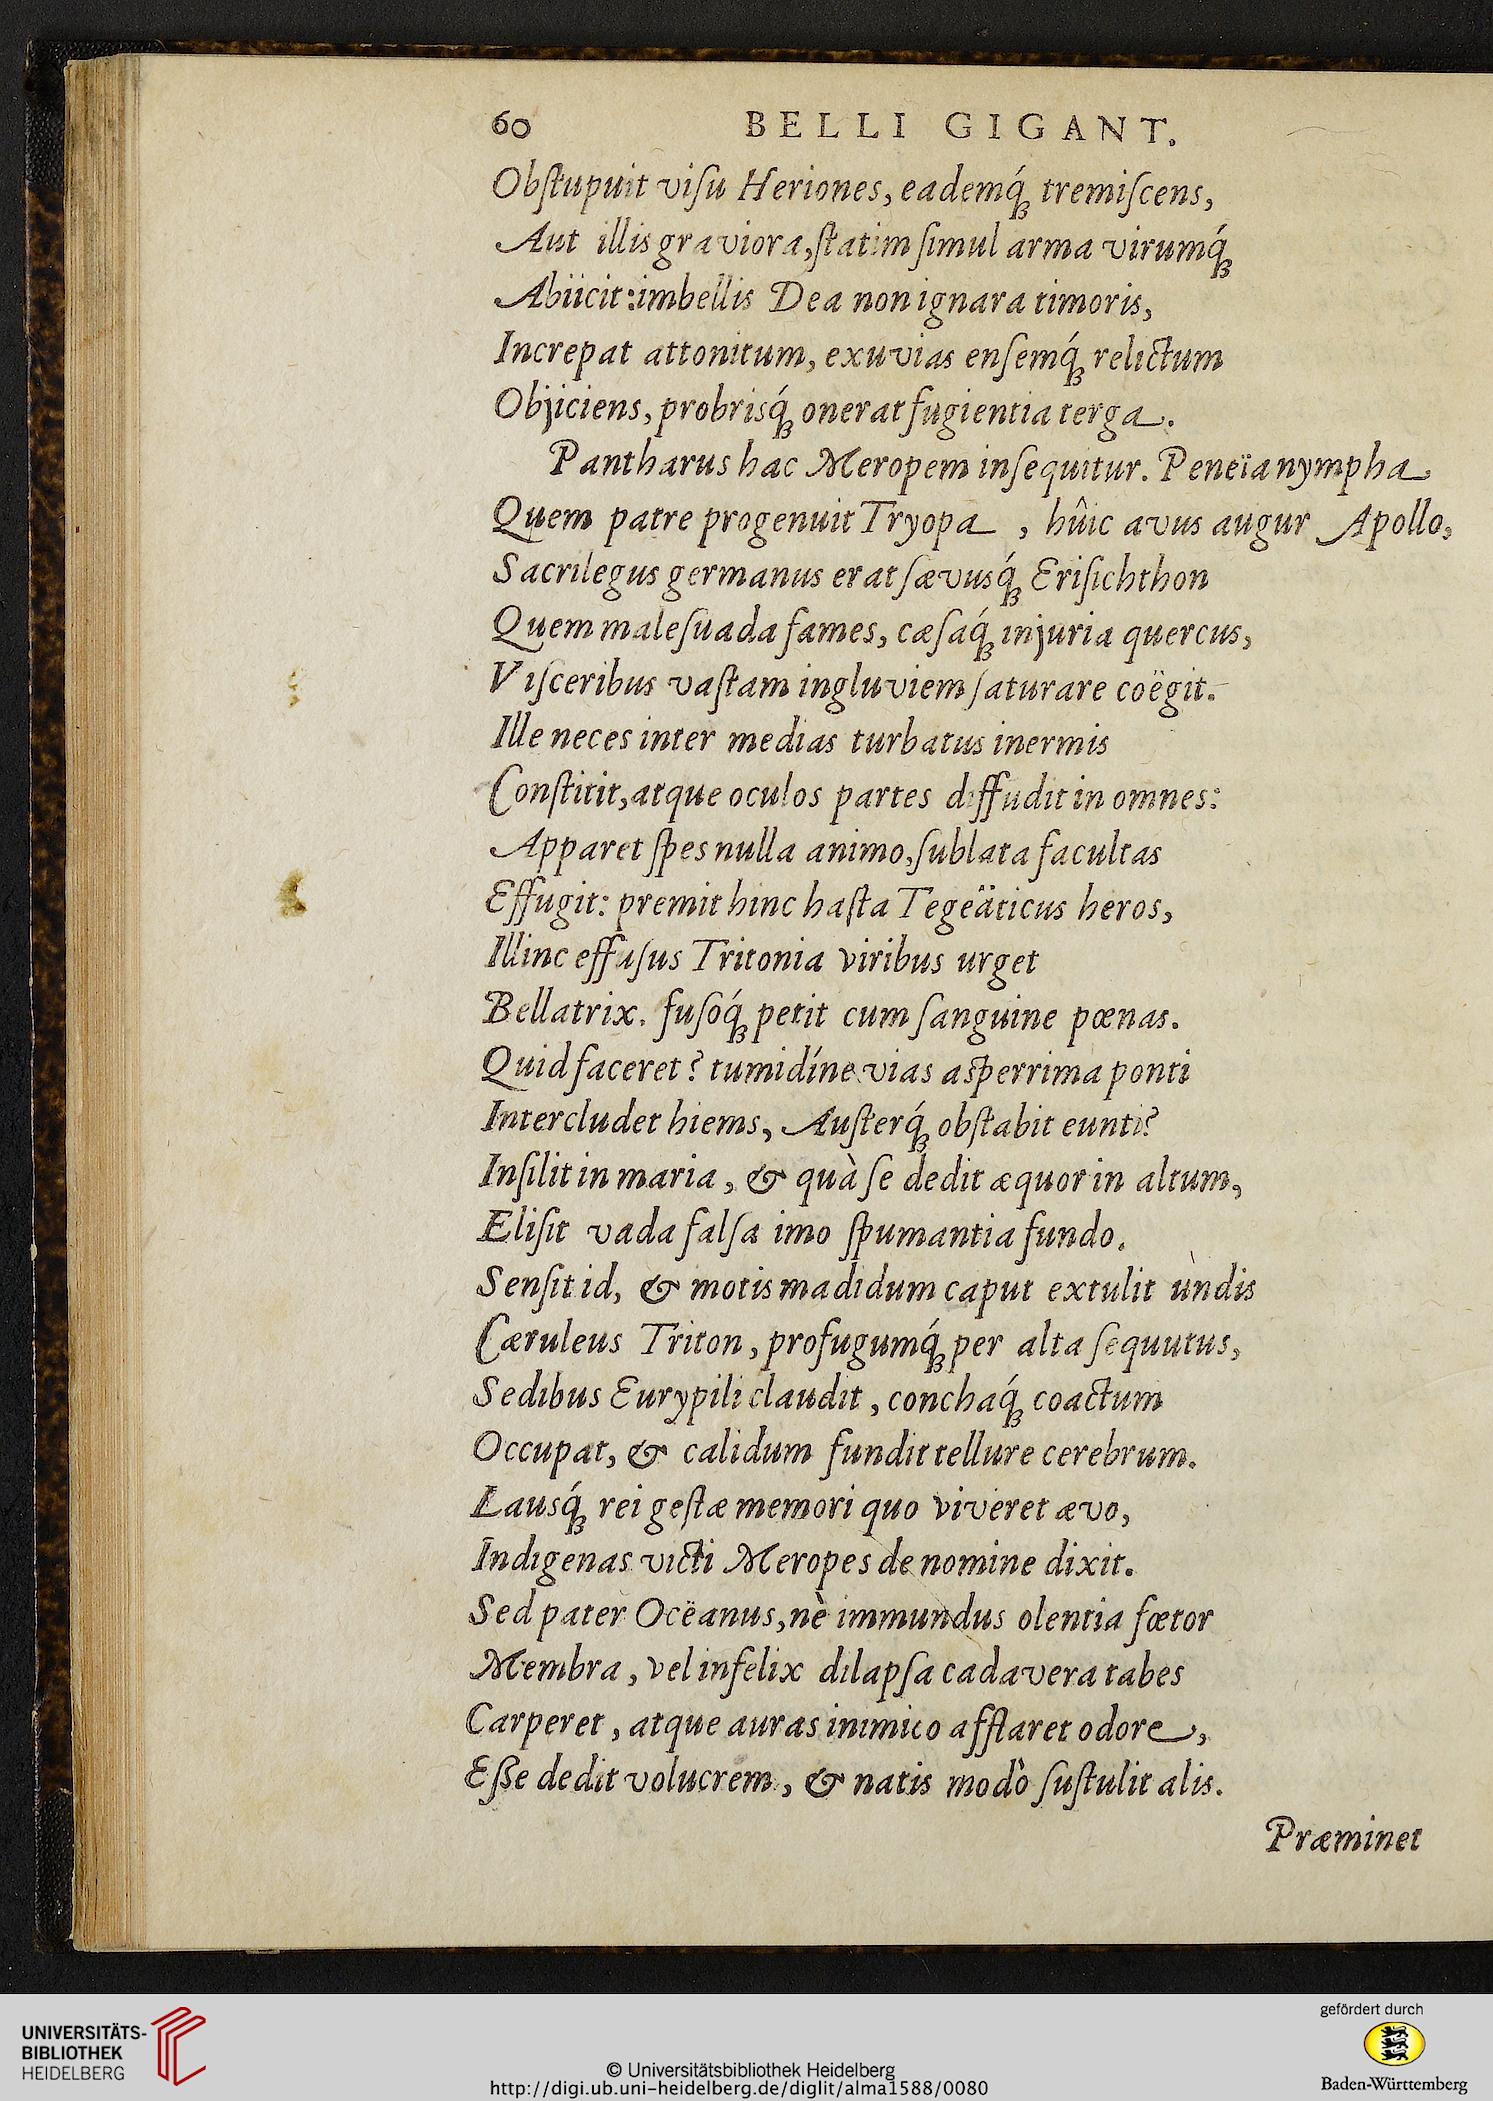 60 BELLI GIGANT.
Obſtupuit viſu Heriones, eademq́ꝫ tremiſcens,
Aut illis graviora, ſtatim ſimul arma virumq́ꝫ
Abiicit: imbellis Dea non ignara timoris,
Increpat attonitum, exuvias enſemq́ꝫ relictum
Objiciens, probrisq́ꝫ onerat fugientia terga.
Pantharus hac Meropem inſequitur. Peneïa nympha
Quem patre progenuit Tryopa , hûic avus augur Apollo,
Sacrilegus germanus erat ſævusq́ꝫ Eriſichthon
Quem maleſuada fames, cæſaq́ꝫ injuria quercus,
Viſceribus vaſtam ingluviem ſaturare coëgit.
Ille neces inter medias turbatus inermis
Conſtitit, atque oculos partes diffudit in omnes:
Apparet ſpes nulla animo, ſublata facultas
Effugit: premit hinc haſta Tegeäticus heros,
Illinc effuſus Tritonia viribus urget
Bellatrix. fuſoq́ꝫ petit cum ſanguine pœnas.
Quid faceret? tumidíne vias aſperrima ponti
Intercludet hiems, Auſterq́ꝫ obſtabit eunti?
Inſilit in maria, & quà ſe dedit æquor in altum,
Eliſit vada falſa imo ſpumantia fundo.
Senſit id, & motis madidum caput extulit undis
Cæruleus Triton, profugumq́ꝫ per alta ſequutus,
Sedibus Eurypili claudit, conchaq́ꝫ coactum
Occupat, & calidum fundit tellure cerebrum.
Lausq́ꝫ rei geſtæ memori quo viveret ævo,
Indigenas victi Meropes de nomine dixit.
Sed pater Ocëanus, nè immundus olentia fœtor
Membra, vel infelix dilapſa cadavera tabes
Carperet, atque auras inimico afflaret odore,
Eſſe dedit volucrem, & natis modò ſuſtulit alis.
Præminet
UNIVERSITÄTS-
BIBLIOTHEK
HEIDELBERG
© Universitätsbibliothek Heidelberg
http://digi.ub.uni-heidelberg.de/diglit/alma1588/0080
gefördert durch
Baden-Württemberg